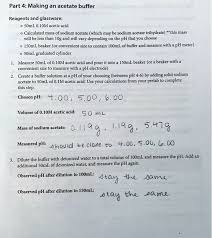 Part 4: Making an acetate buffer
Reagents and glassware:
• 50mL 0.10M acetic acid
• Calculated mass of sodium acetate (which may be sodium acetate trihydrate) **This mass will be less than 10g and will vary depending on the pH that you choose
• 150mL beaker (or convenient size to contain 100mL of buffer and measure with a pH meter)
• 50mL graduated cylinder
1. Measure 50mL of 0.10M acetic acid and pour it into a 150mL beaker (or a beaker with a convenient size to measure with a pH electrode)
2. Create a buffer solution at a pH of your choosing (between pH 4-6) by adding solid sodium acetate to 50mL of 0.10M acetic acid. Use your calculations from your prelab to complete this step.
Chosen pH: 4.00, 5.00, 6.00
Volume of 0.10M acetic acid: 50 mL
Mass of sodium acetate: 0.119g, 1.19g, 5.47g
Measured pH: should be close to 4.00, 5.00, 6.00
3. Dilute the buffer with deionized water to a total volume of 100mL and measure the pH. Add an additional 50mL of deionized water, and measure the pH again.
Observed pH after dilution to 100mL: stay the same
Observed pH after dilution to 150mL: stay the same